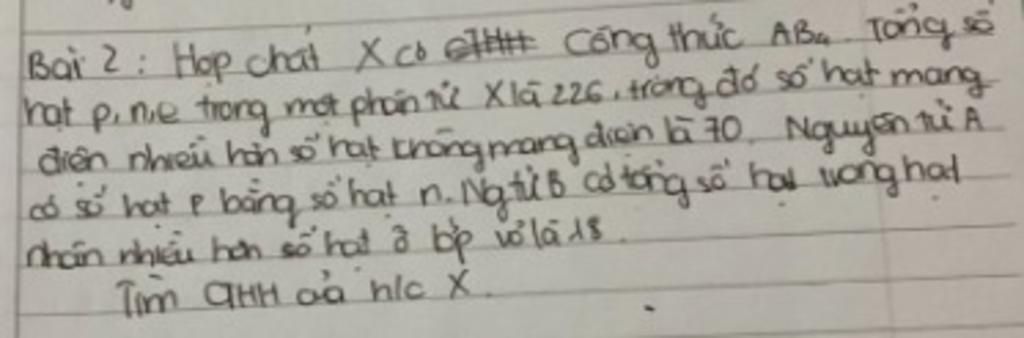 Bài 2 : Hợp chất X có công thức AB4. Tổng số
hạt p, n, e trong một phân tử X là 226, trong đó số hạt mang
điện nhiều hơn số hạt không mang điện là 70. Nguyên tử A
có số hạt p bằng số hạt n. Ng tử B có tổng số hạt trong hạt
nhân nhiều hơn số hạt ở lớp vỏ là 18.
Tìm CTHH của h/c X.